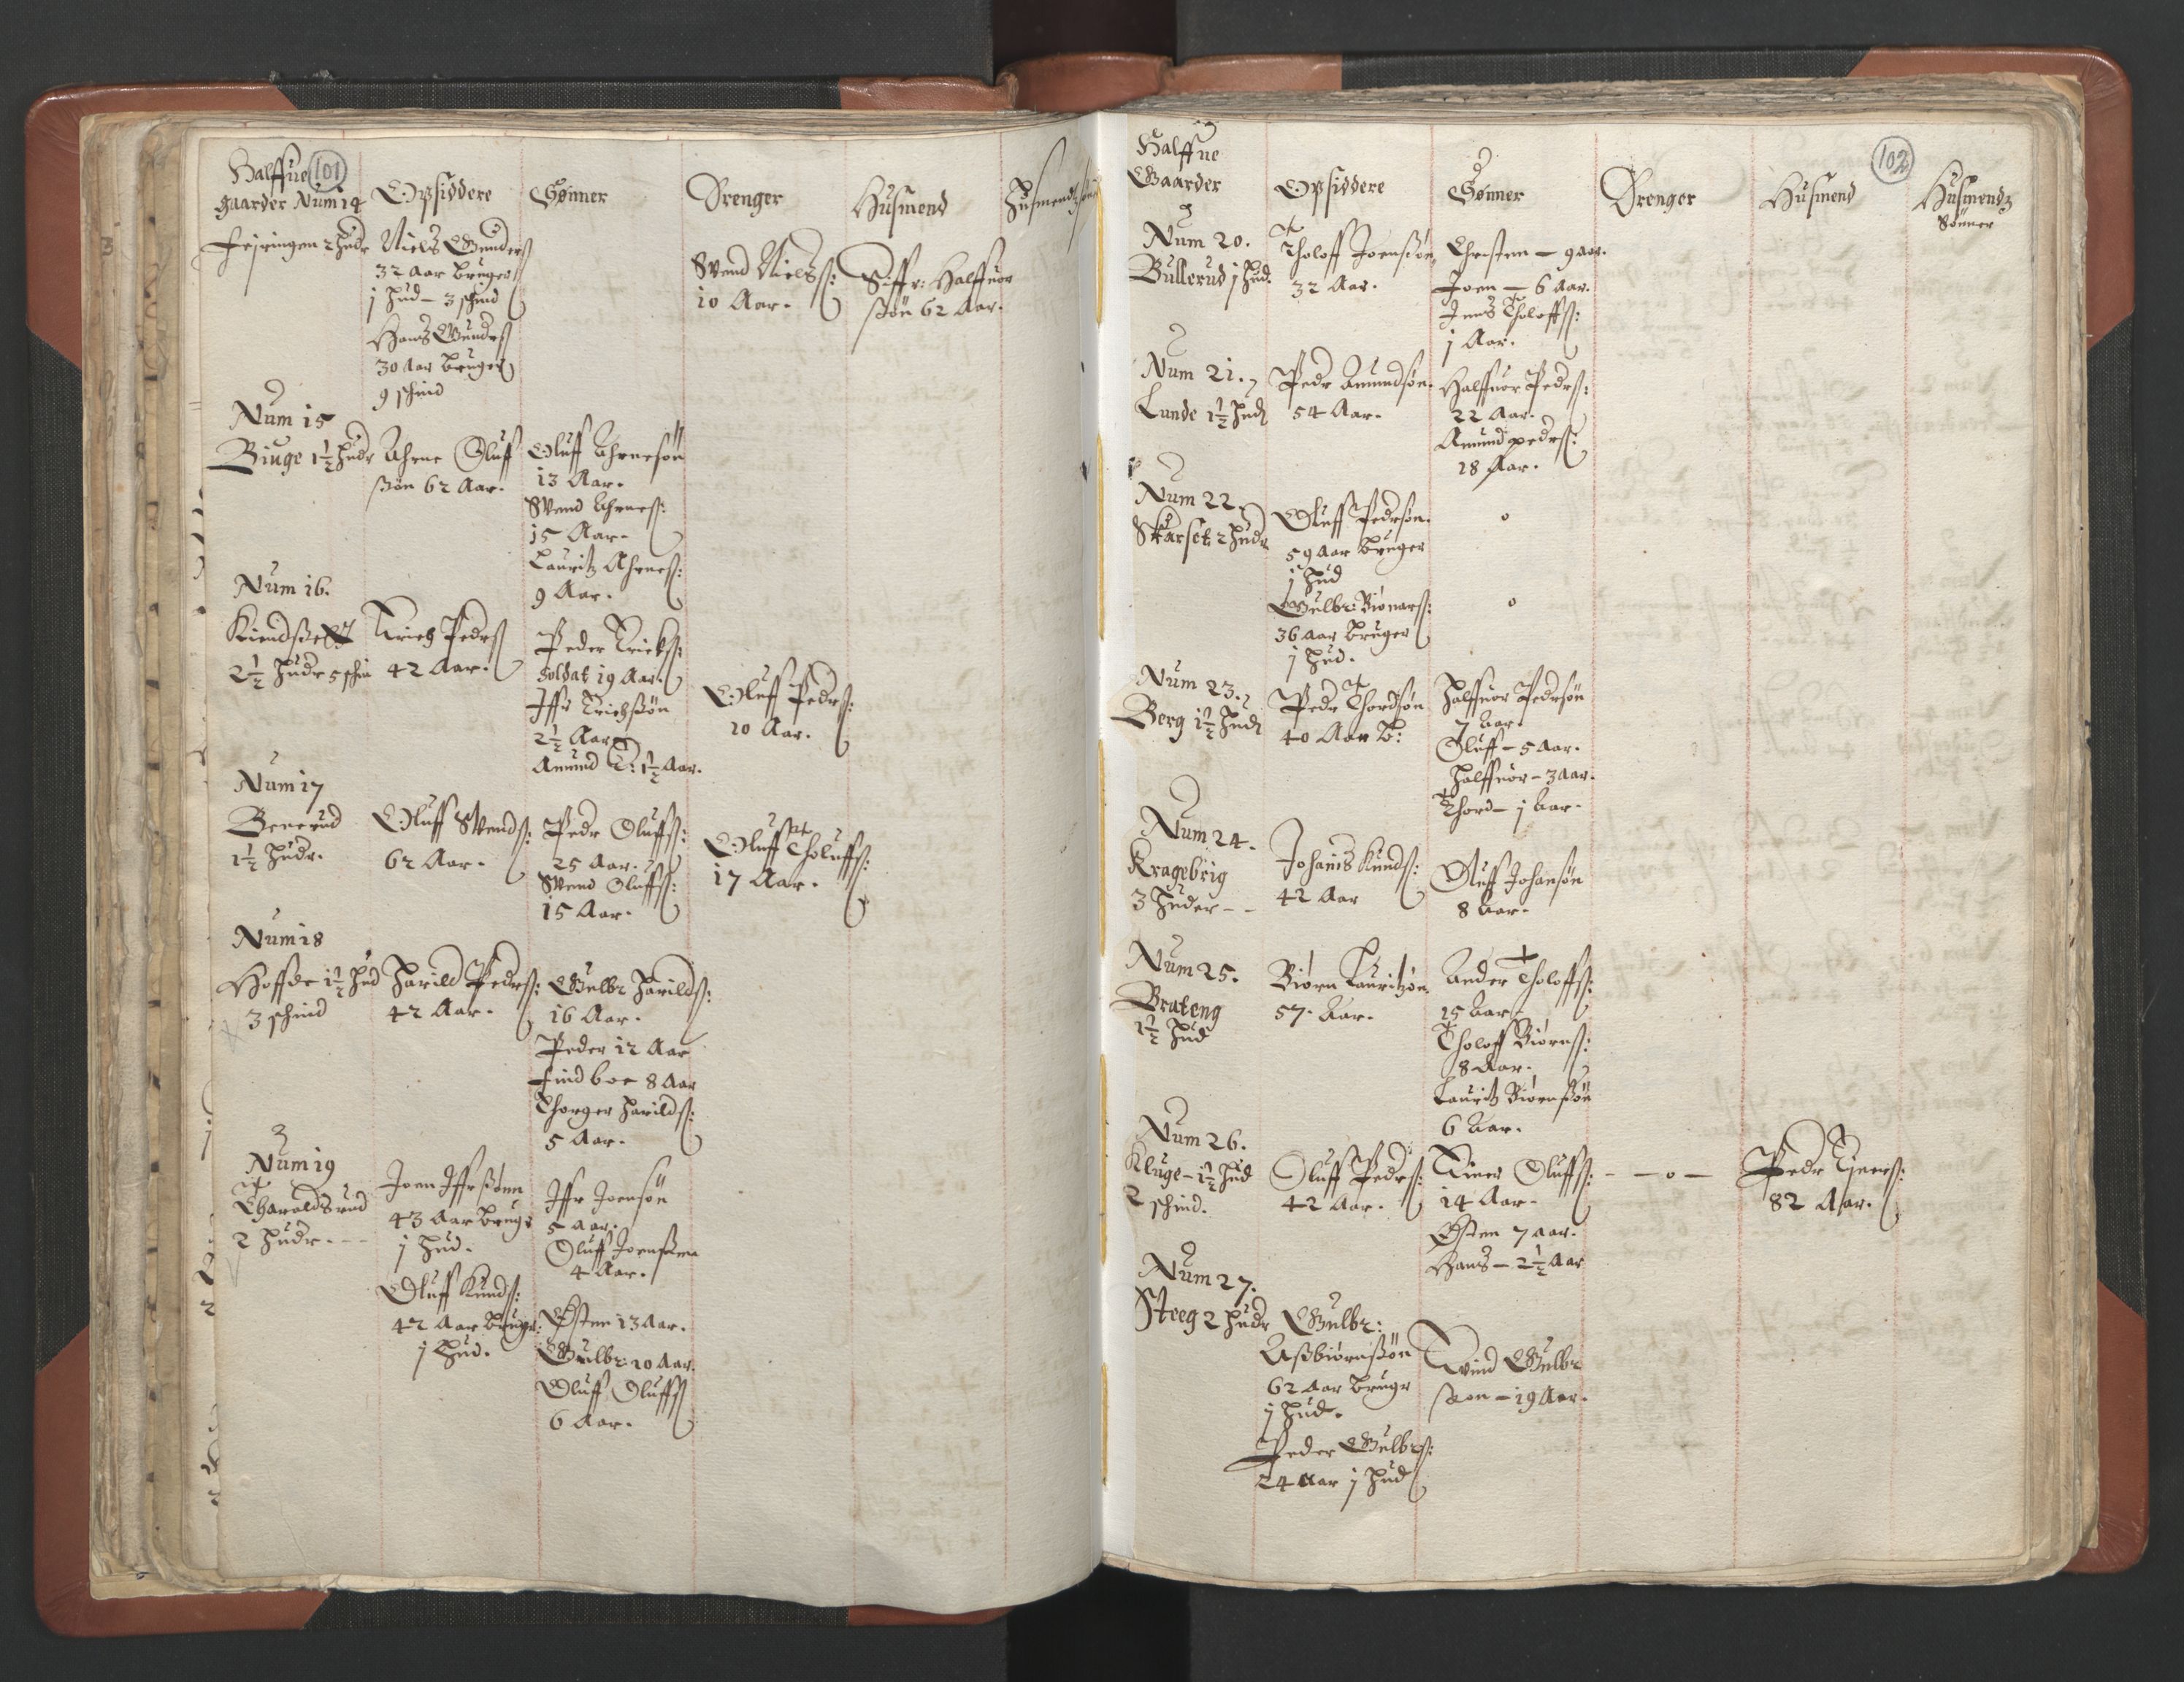 101
Halffue
gaarder Num 14
Opsiddere
Sønner
Drenger
Husmend
Husmendz
Fejringen 2 hudr
Niels Gunders
32 aar bruger
j hud – 3 schind
Hans Gunders
30 aar bruger
9 schind
Svend Nielss:
10 Aar.
Siffr: Halffuor
søn 62 Aar.
Num 15
Biuge 1½ hudr
Ahrne Oluf
søn 62 Aar.
Oluff Ahrnesøn
13 Aar.
Svend Ahrness:
15 Aar.
Lauritz Ahrness:
9 Aar.
Num 16.
2½ hudr 5 schin
Erich Peders
42 Aar.
Peder Ericks:
soldat 19 Aar.
Iffr Erichsøn
2½ Aar
Amund E: 1½ Aar.
Oluff Peders:
10 Aar.
Num 17
Benerud
1½ hudr.
Oluff Svends:
62 Aar.
Pedr Oluffs:
25 aar.
Svend Oluffs:
15 Aar.
Oluff Tholuffs:
17 Aar.
Num 18
Hoffde 1½ hud
3 schind
Harild Pedrs:
42 Aar.
Gulbr Harilds:
16 Aar.
Peder 12 Aar
Findboe 8 Aar
Thorger Harilds:
5 Aar.
Num 19
Tharaldsrud
2 hudr. - -
Joen Iffrsønn
43 Aar brugr
j hud.
Iffr Joensøn
5 aar.
Oluff Joensøn
4 Aar.
Oluff Knuds:
42 Aar brugr:
j hud.
Østen 13 Aar.
Gulbr: 10 Aar.
Oluff Oluffs
6 Aar.
102
Halffue
Gaarder
Opsiddere
Sønner
Drenger
Husmend
Husmendz
Sønner
Num 20.
Bullerud j hud.
Tholoff Joensøn
32 Aar.
Christen – 9 aar.
Joen – 6 Aar.
Jens Tholoffs:
j Aar.
Num 21.
Lunde 1½ hud
Pedr Amundsøn.
54 Aar.
Halffuor Pedrs:
22 Aar.
Amund pedrs:
18 Aar.
Num 22.
Skarset 2 hudr
Oluff Pedrsøn.
59 Aar bruger
j hud
o
Gulbr: Biønars:
36 aar bruger
j hud.
o
Num 23.
Berg 1½ hud
Pedr Thordsøn
40 Aar b:
Halffuor Pedrsøn
7 Aar.
Oluff – 5 Aar.
Halffuor – 3 Aar.
Thord – j Aar.
Num 24.
Kragebrig
3 huder - -
Johanis Knuds:
42 Aar
Oluff Johansøn
8 Aar.
Num 25.
Brateng
1½ hud
Biørn Lauritzøn
57. Aar.
Ander Tholoffs:
15 Aar
Tholoff Biørns:
8 Aar.
Lauritz Biørnsøn
6 Aar.
Num 26.
Kluge – 1½ hud
2 schind.
Oluff Pedrs:
42 Aar.
Einer Oluffs: - – o –
14 Aar.
Østen 7 aar.
Hans – 2½ Aar
Pedr Eners:
82 Aar.
Num 27.
Steeg 2 hudr
Gulbr:
Asbiørnsøn
62 Aar brugr
j hud.
Evind Gulbr
søon – 19 Aar.
Peder Gulbrs:
24 aar j hud